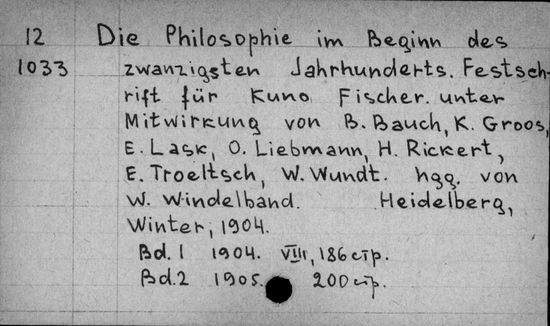 12 Die Philosophie im Beginn des
1033 zwanzigsten Jahrhunderts. Festsch-
rift für Kuno Fischer. unter
Mitwirkung von B. Bauch, K. Groos,
E. Lask, O. Liebmann, H. Rickert,
E. Troeltsch, W. Wundt. hgg. von
W. Windelband. Heidelberg,
Winter, 1904.
Bd. 1 1904. VIII, 186 стр.
Bd. 2 1905. 200 стр.